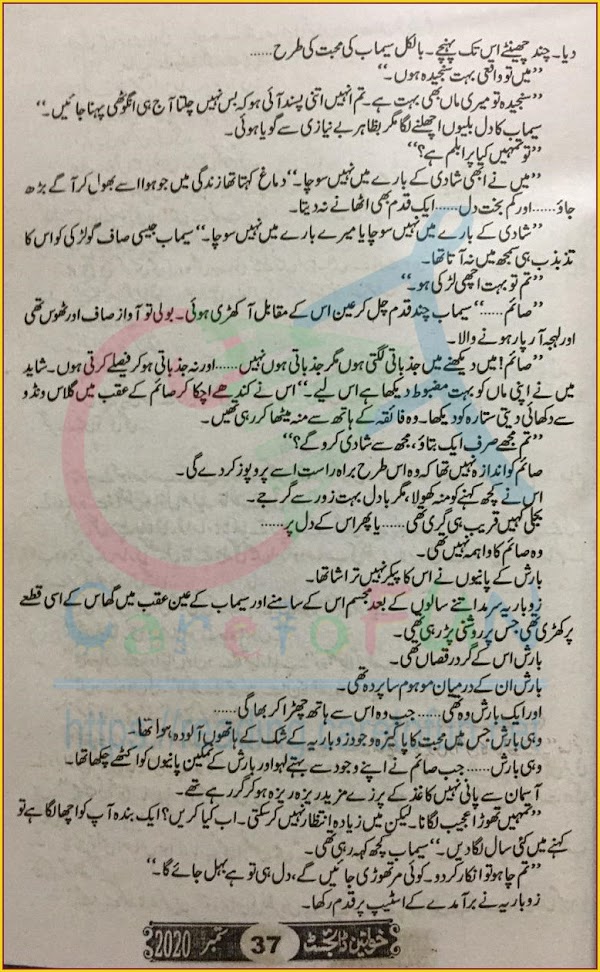 دیا۔ چند چھینٹے اس تک پہنچے۔ بالکل سیماب کی محبت کی طرح......
”میں تو واقعی بہت سنجیدہ ہوں۔“
”سنجیدہ تو میری ماں بھی بہت ہے۔ تم انہیں اتنی پسند آئی ہو کہ بس نہیں چلتا آج ہی انگوٹھی پہنا جائیں۔“
سیماب کا دل بلیوں اچھلنے لگا مگر بظاہر بے نیازی سے گویا ہوئی۔
”تو تمہیں کیا پرابلم ہے؟“
”میں نے ابھی شادی کے بارے میں نہیں سوچا۔“ دماغ کہتا تھا زندگی میں جو ہوا اسے بھول کر آگے بڑھ
جاؤ...... اور کم بخت دل...... ایک قدم بھی اٹھانے نہ دیتا۔
”شادی کے بارے میں نہیں سوچا یا میرے بارے میں نہیں سوچا۔“ سیماب جیسی صاف گو لڑکی کو اس کا
تذبذب ہی سمجھ میں نہ آتا تھا۔
”تم تو بہت اچھی لڑکی ہو۔“
”صائم......“ سیماب چند قدم چل کر عین اس کے مقابل آ کھڑی ہوئی۔ بولی تو آواز صاف اور ٹھوس تھی
اور لہجہ آر پار ہونے والا۔
”صائم! میں دیکھنے میں جذباتی لگتی ہوں مگر جذباتی ہوں نہیں...... اور نہ جذباتی ہو کر فیصلے کرتی ہوں۔ شاید
میں نے اپنی ماں کو بہت مضبوط دیکھا ہے اس لیے۔“ اس نے کندھے اچکا کر صائم کے عقب میں گلاس ونڈو
سے دکھائی دیتی ستارہ کو دیکھا۔ وہ فائقہ کے ہاتھ سے منہ میٹھا کر رہی تھیں۔
”تم مجھے صرف ایک بتاؤ، مجھ سے شادی کرو گے؟“
صائم کو اندازہ نہیں تھا کہ وہ اس طرح براہ راست اسے پروپوز کر دے گی۔
اس نے کچھ کہنے کو منہ کھولا، مگر بادل بہت زور سے گرجے۔
بجلی کہیں قریب ہی گری تھی...... یا پھر اس کے دل پر......
وہ صائم کا واہمہ نہیں تھی۔
بارش کے پانیوں نے اس کا پیکر نہیں تراشا تھا۔
زوباریہ سرمد اتنے سالوں کے بعد مجسم اس کے سامنے اور سیماب کے عین عقب میں گھاس کے اسی قطعے
پر کھڑی تھی جس پر روشنی پڑ رہی تھی۔
بارش اس کے گرد رقصاں تھی۔
بارش ان کے درمیان موہوم سا پردہ تھی۔
اور ایک بارش وہ تھی...... جب وہ اس سے ہاتھ چھڑا کر بھاگی......
وہی بارش جس میں محبت کا پاکیزہ وجود زوباریہ کے شک کے ہاتھوں آلودہ ہوا تھا۔
وہی بارش...... جب صائم نے اپنے وجود سے بہتے لہو اور بارش کے نمکین پانیوں کو اکٹھے چکھا تھا۔
آسمان سے پانی نہیں کاغذ کے پرزے مزید ریزہ ریزہ ہو کر گر رہے تھے۔
”تمہیں تھوڑا عجیب لگا نا۔ لیکن میں زیادہ انتظار نہیں کر سکتی۔ اب کیا کریں؟ ایک بندہ آپ کو اچھا لگا ہے تو
کہنے میں کئی سال لگا دیں۔“ سیماب کچھ کہہ رہی تھی۔
”تم چاہو تو انکار کر دو۔ کوئی مر تھوڑی جائیں گے، دل ہی تو ہے بہل جائے گا۔“
زوباریہ نے برآمدے کے اسٹیپ پر قدم رکھا۔
خواتین ڈائجسٹ 37 ستمبر 2020
CaretoFUN